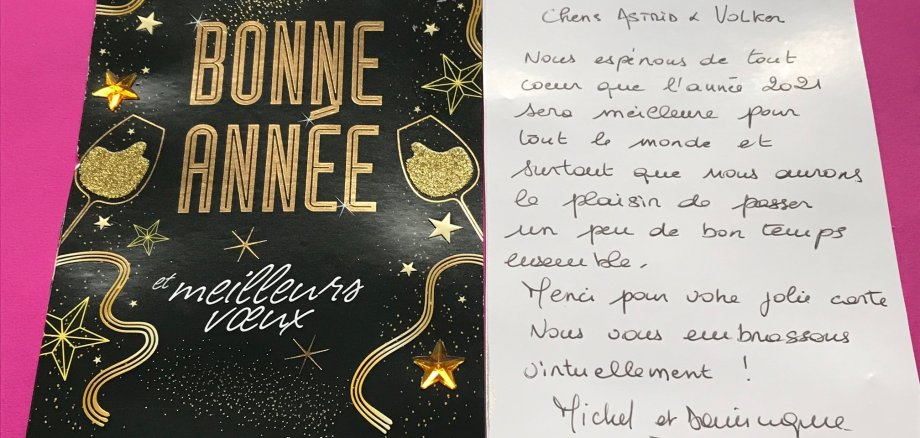 BONNE
ANNÉE
et meilleurs
vœux
Chers ASTRID & VOLKER
Nous espérons de tout
coeur que l'année 2021
sera meilleure pour
tout le monde et
surtout que nous aurons
le plaisir de passer
un peu de bon temps
ensemble.
Merci pour votre jolie carte
Nous vous embrassons
virtuellement !
Michel et Dominique